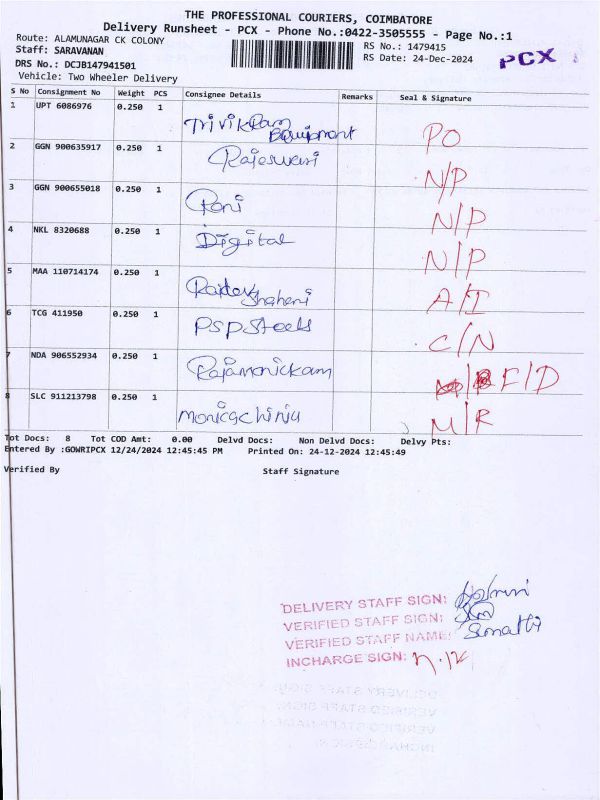 THE PROFESSIONAL COURIERS, COIMBATORE
Delivery Runsheet - PCX - Phone No.:0422-3505555 - Page No.:1
Route: ALAMUNAGAR CK COLONY
RS No.: 1479415
Staff: SARAVANAN
RS Date: 24-Dec-2024
PCX
DRS No.: DCJB147941501
Vehicle: Two Wheeler Delivery
S No Consignment No Weight PCS Consignee Details Remarks Seal & Signature
1 UPT 6086976 0.250 1 Equipment PO
2 GGN 900635917 0.250 1 Rajeswari N/P
3 GGN 900655018 0.250 1 Rani N/P
4 NKL 8320688 0.250 1 Digital N/P
5 MAA 110714174 0.250 1 A/I
6 TCG 411950 0.250 1 PSP Steels C/N
7 NDA 906552934 0.250 1 Rajamanickam F/D
8 SLC 911213798 0.250 1 M/R
Tot Docs: 8 Tot COD Amt: 0.00 Delvd Docs: Non Delvd Docs: Delvy Pts:
Entered By :GOWRIPCX 12/24/2024 12:45:45 PM Printed On: 24-12-2024 12:45:49
Verified By Staff Signature
DELIVERY STAFF SIGN:
VERIFIED STAFF SIGN:
VERIFIED STAFF NAME: Sumathi
INCHARGE SIGN: